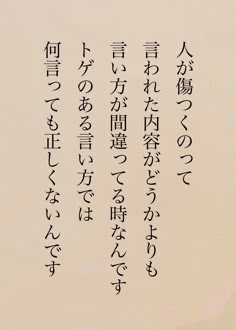 人が傷つくのって
言われた内容がどうかよりも
言い方が間違ってる時なんです
トゲのある言い方では
何言っても正しくないんです